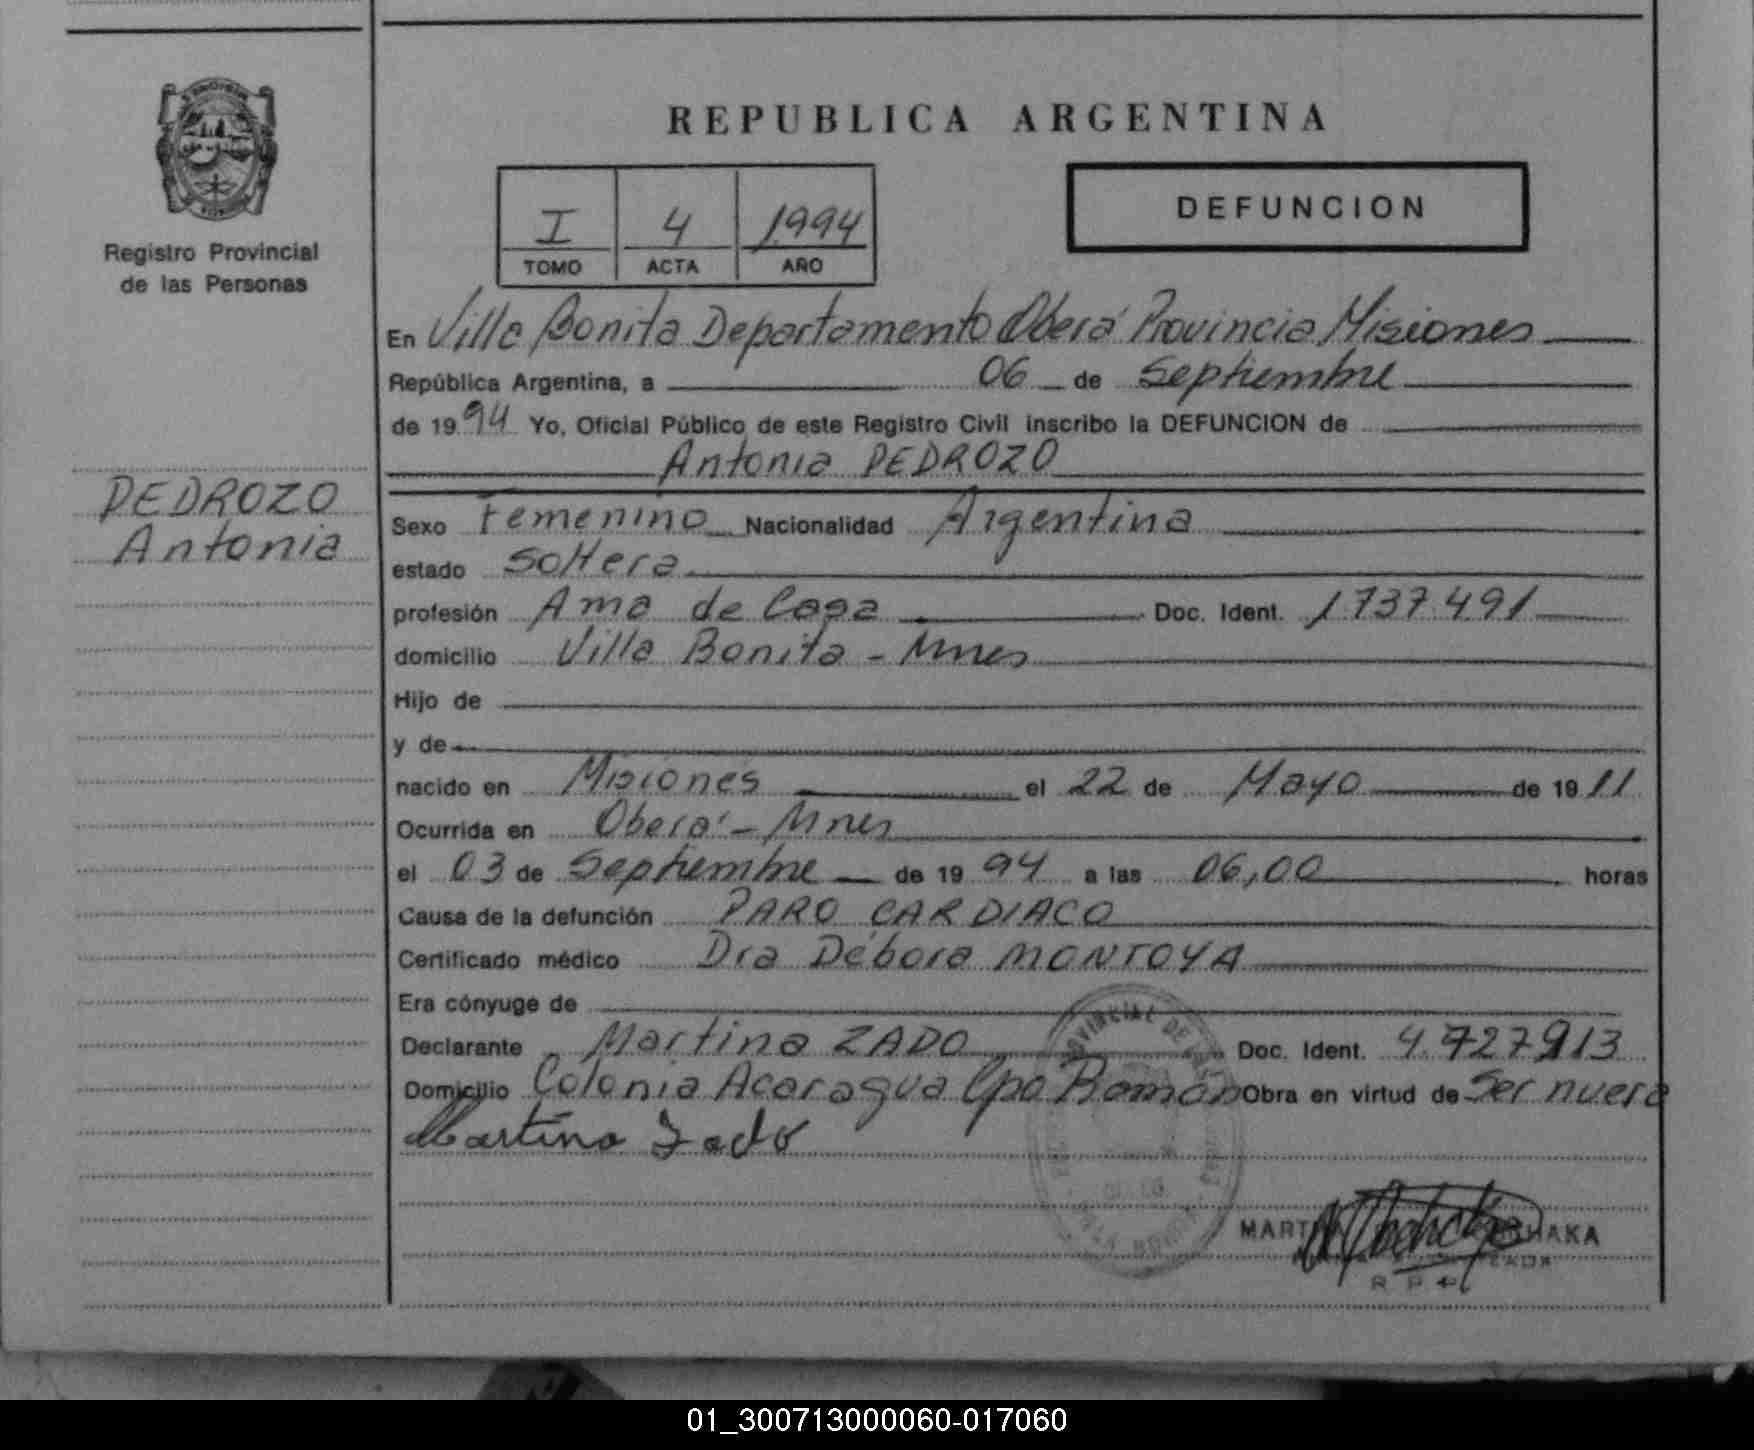 REPUBLICA ARGENTINA
DEFUNCION
I 4 1994
TOMO ACTA AÑO
Registro Provincial
de las Personas
PEDROZO
Antonia
En Villa Bonita Departamento Oberá Provincia Misiones
República Argentina, a 06 de Septiembre
de 1994 Yo, Oficial Público de este Registro Civil inscribo la DEFUNCION de
Antonia PEDROZO
Sexo Femenino Nacionalidad Argentina
estado Soltera
profesión Ama de Casa Doc. Ident. 1737491
domicilio Villa Bonita - Mnes
Hijo de
y de
nacido en Misiones el 22 de Mayo de 1911
Ocurrida en Oberá - Mnes
el 03 de Septiembre de 1994 a las 06,00 horas
Causa de la defunción PARO CARDIACO
Certificado médico Dra Débora MONTOYA
Era cónyuge de
Declarante Martina ZADO Doc. Ident. 4.727913
Domicilio Colonia Acaragua Cpo Román Obra en virtud de Ser nuera
Martina Zado
R P P
01_300713000060-017060